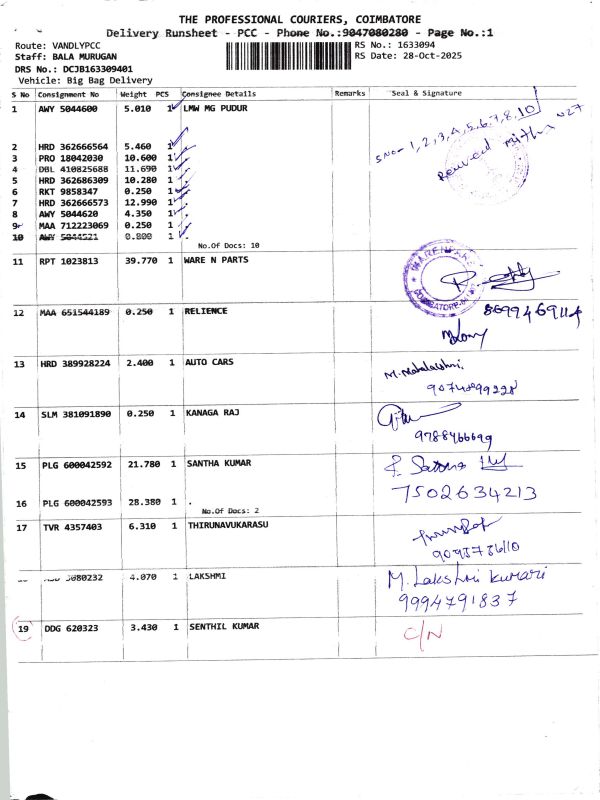 THE PROFESSIONAL COURIERS, COIMBATORE
Delivery Runsheet - PCC - Phone No.:9047080280 - Page No.:1
Route: VANDLYPCC RS No.: 1633094
Staff: BALA MURUGAN RS Date: 28-Oct-2025
DRS No.: DCJB163309401
Vehicle: Big Bag Delivery
S No Consignment No Weight PCS Consignee Details Remarks Seal & Signature
1 AWY 5044600 5.010 1 LMW MG PUDUR
S.No-1,2,3,4,5,6,7,8,10
2 HRD 362666564 5.460 1 .
3 PRO 18042030 10.600 1 .
4 DBL 410825688 11.690 1 .
5 HRD 362686309 10.280 1 .
6 RKT 9858347 0.250 1 .
7 HRD 362666573 12.990 1 .
8 AWY 5044620 4.350 1 .
9 MAA 712223069 0.250 1 .
10 AWY 5044521 0.800 1 .
No.Of Docs: 10
11 RPT 1023813 39.770 1 WARE N PARTS
12 MAA 651544189 0.250 1 RELIENCE
13 HRD 389928224 2.400 1 AUTO CARS
M. Mahalakshmi
14 SLM 381091890 0.250 1 KANAGA RAJ
15 PLG 600042592 21.780 1 SANTHA KUMAR
7502634213
16 PLG 600042593 28.380 1 .
No.Of Docs: 2
17 TVR 4357403 6.310 1 THIRUNAVUKARASU
080232 4.070 1 LAKSHMI
M. Lakshmi kumari
9994791837
19 DDG 620323 3.430 1 SENTHIL KUMAR C/N